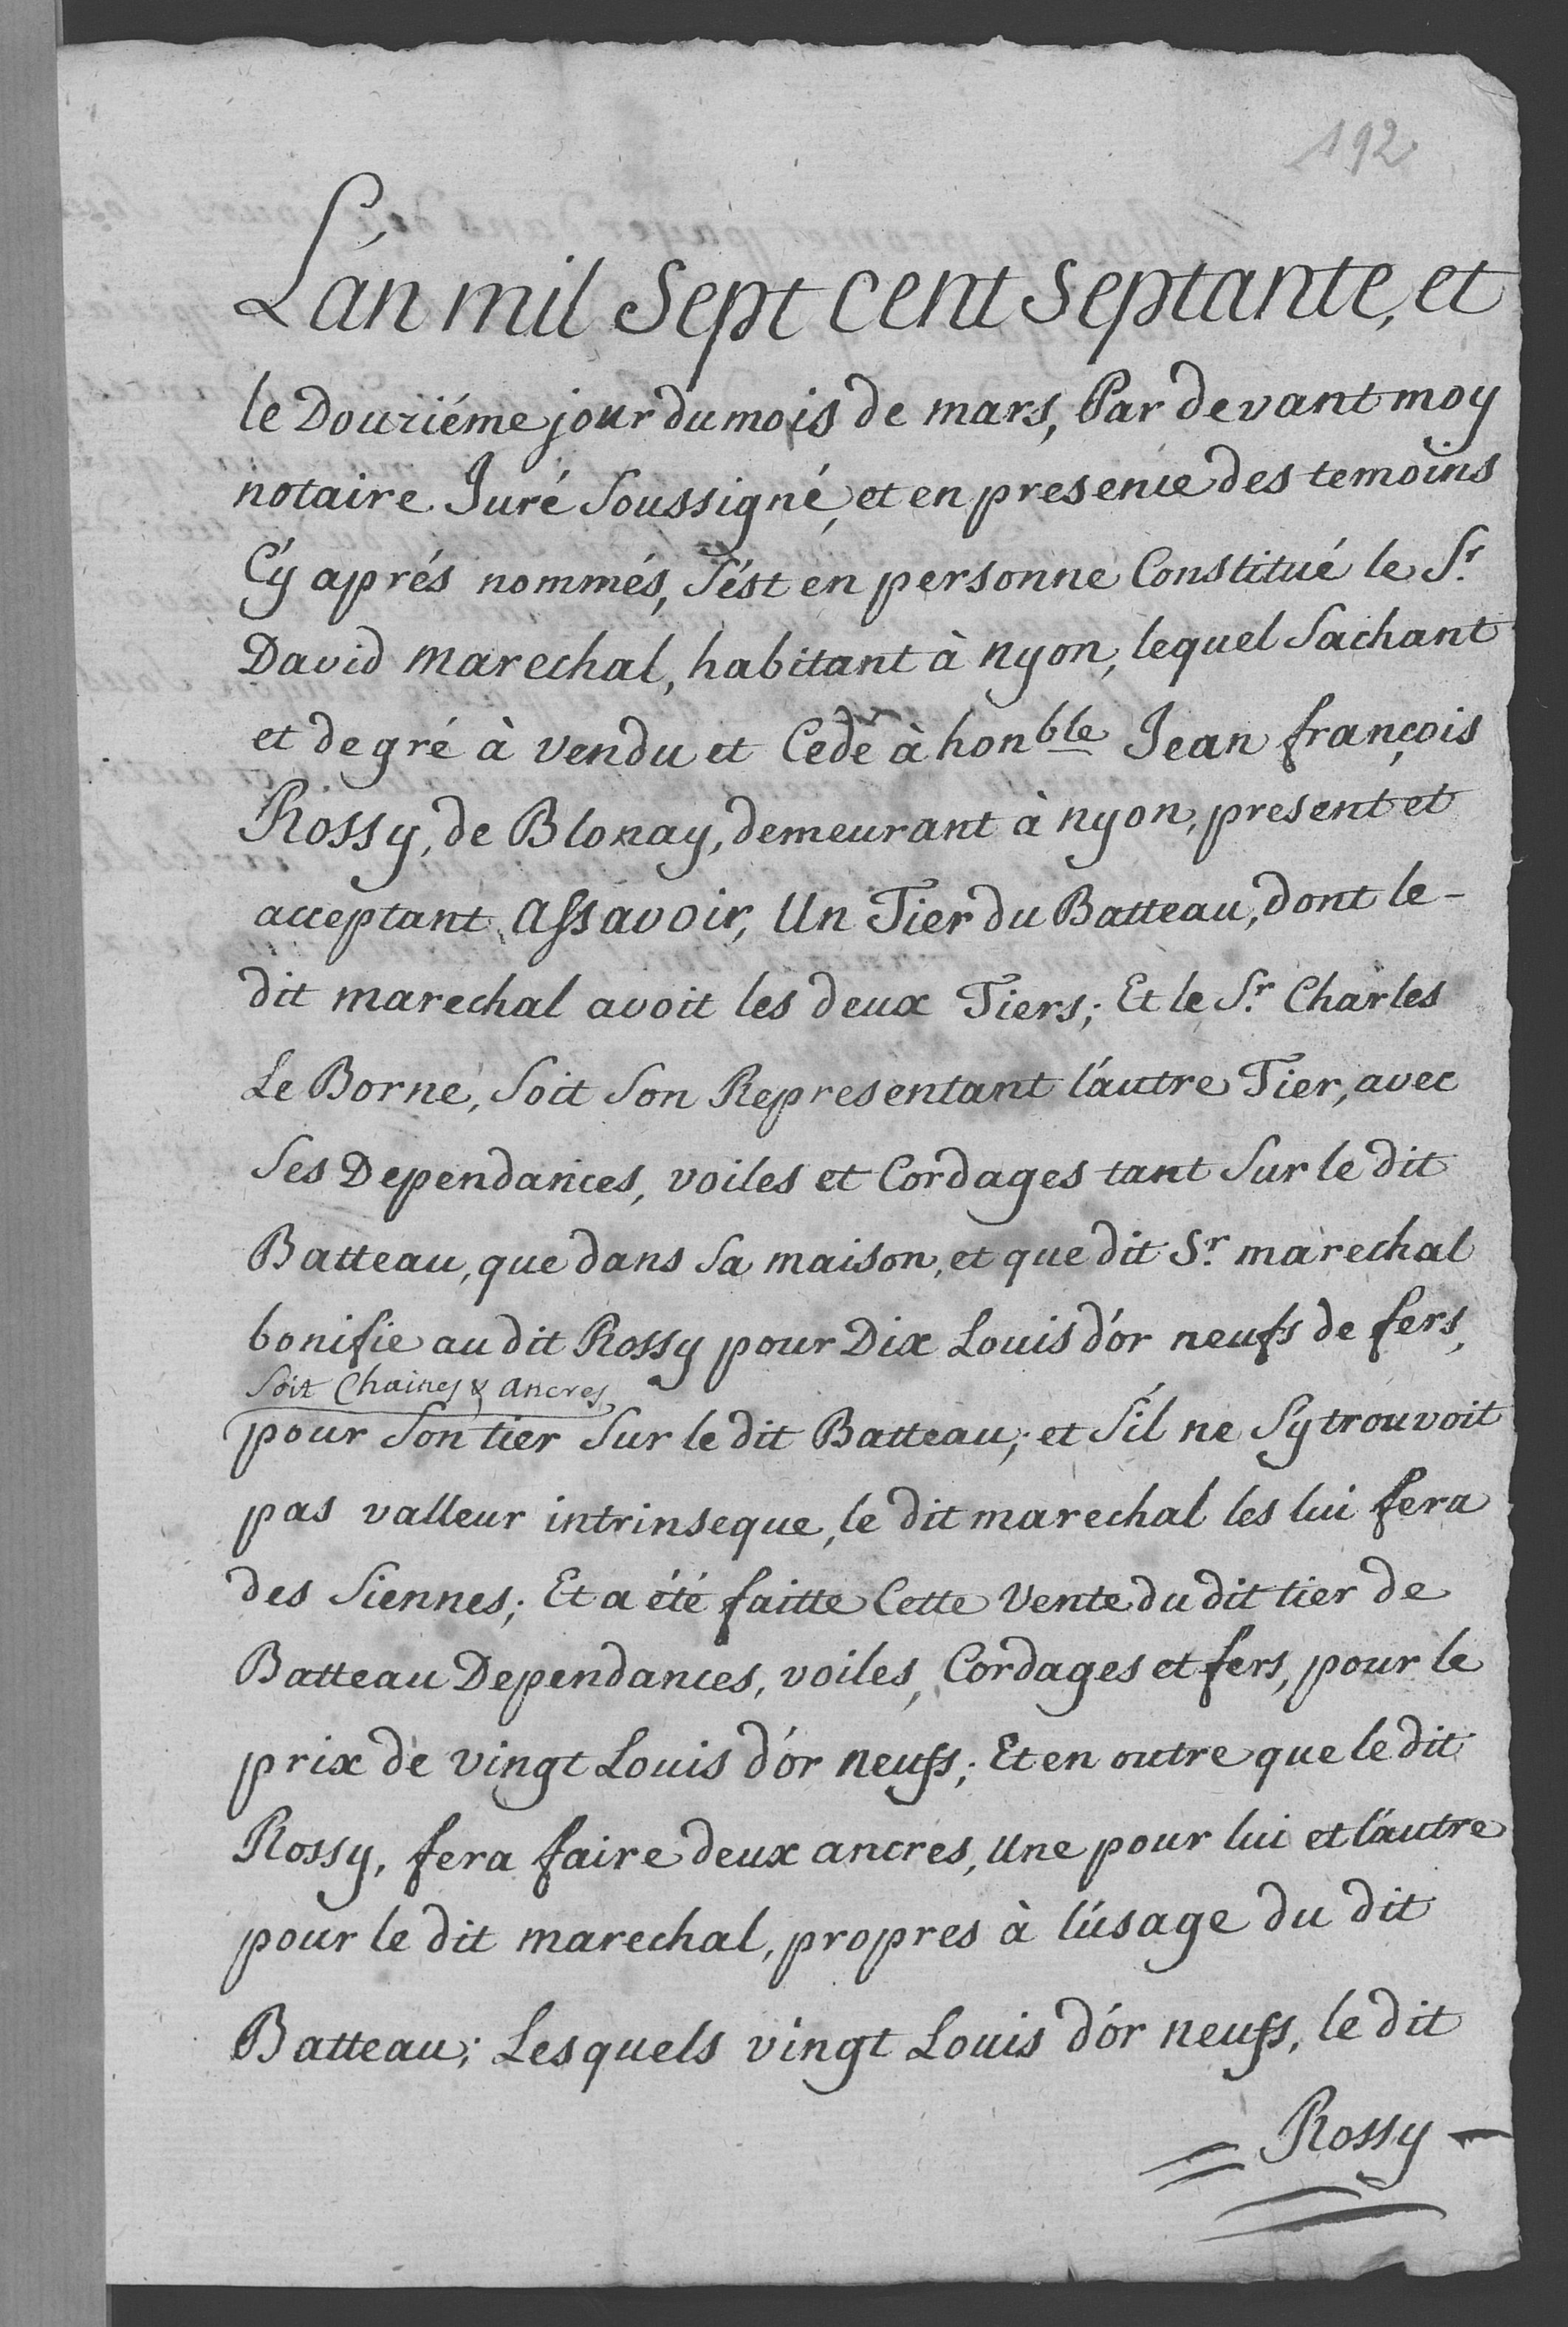 192
L'an mil Sept cent Septante, et
le Douziéme jour du mois de mars, Par devant moy
notaire Juré Soussigné, et en presence des temoins
C'y aprés nommés, S'ést en personne Constitué le Sr.
David marechal, habitant à nyon, lequel Sachant
et de gré à vendu et Cedé à honble Jean françois
Rossy, de Blonay, demeurant à nyon, present et
acceptant, assavoir, Un Tier du Batteau, dont le-
dit marechal avoit les deux Tiers; Et le Sr. Charles
Le Borne, Soit Son Representant l'autre Tier, avec
Ses Dependances, voiles et Cordages tant Sur le dit
Batteau, que dans Sa maison, et que dit Sr. marechal
bonifie au dit Rossy pour Dix Louis d'or neufs de fers,
Soit Chaines & ancres
pour Son tier Sur le dit Batteau; et S'il ne Sy trouvoit
pas valleur intrinseque, le dit marechal les lui fera
des Siennes; Et a été faitte Cette Vente du dit tier de
Batteau Dependances, voiles, Cordages et fers, pour le
prix de vingt Louis d'or neufs; Et en outre que le dit
Rossy, fera faire deux ancres, une pour lui et l'autre
pour le dit marechal, propres à l'usage du dit
Batteau; Lesquels vingt Louis d'or neufs, le dit
Rossy